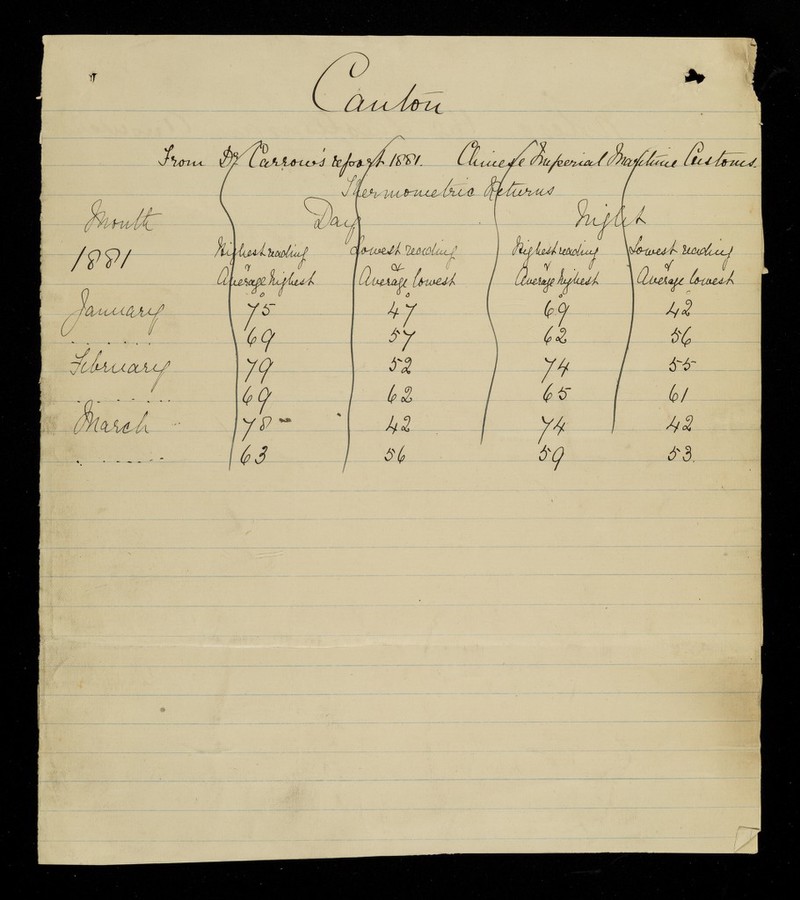 Canton
From Dr. Carrow's report 1881. Chinese Imperial Maritime Customs.
Thermometric Returns
Month Day Night
1881 Highest reading Lowest reading Highest reading Lowest reading
& & & &
Average highest Average lowest Average highest Average lowest
January 75° 47° 69° 42°
....... 69 57 62 56
February 79 52 74 55
......... 69 62 65 61
March 78 42 74 42
........ 63 56 59 53.